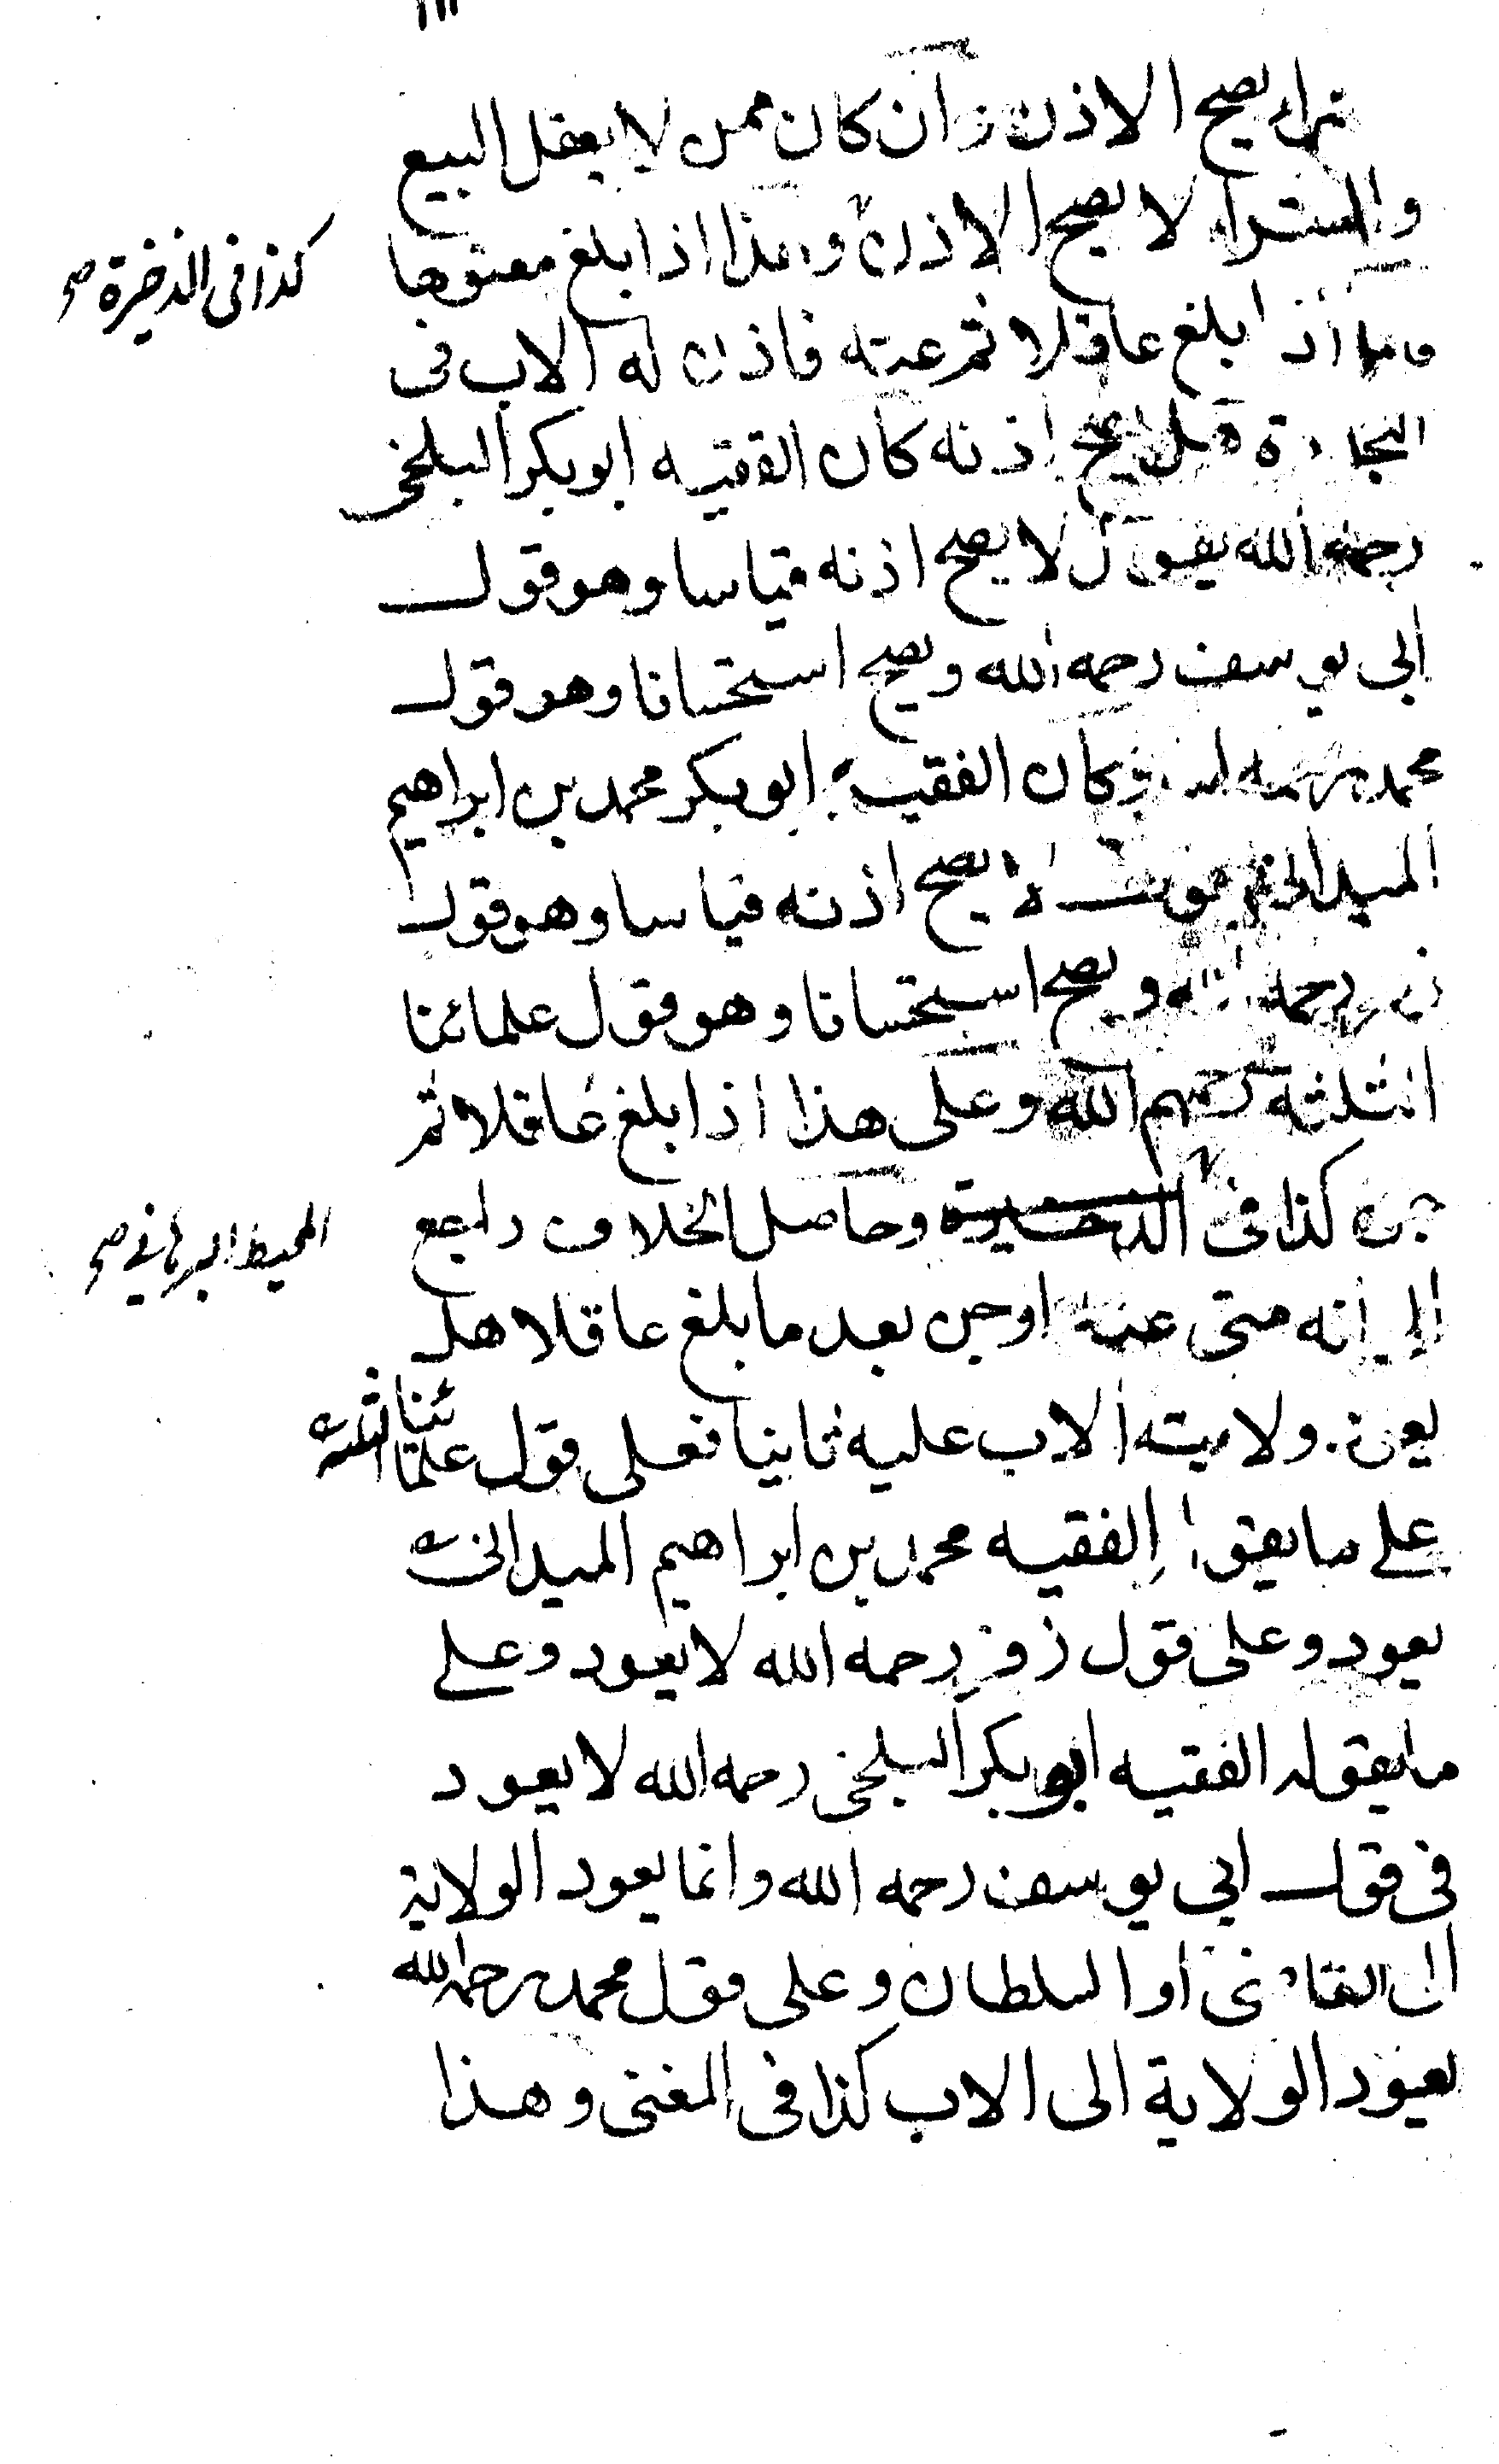 شراء يصح الاذن وان كان ممن لا يعقل البيع
والشراء لا يصح الاذن وهذا اذا بلغ معتوها
كذا فى الذخيرة صح
فاما اذا بلغ عاقلا ثم عته فاذن له الاب فى
التجارة هل يصح اذنه كان الفقيه ابو بكر البلخى
رحمه الله يقول لا يصح اذنه قياسا وهو قول
ابى يوسف رحمه الله ويصح استحسانا وهو قول
محمد رحمه الله وكان الفقيه ابو بكر محمد بن ابراهيم
الميدانى يقول لا يصح اذنه قياسا وهو قول
زفر رحمه الله ويصح استحسانا وهو قول علمائنا
الثلثة رحمهم الله وعلى هذا اذا بلغ عاقلا ثم
جن كذا فى الذخيرة وحاصل الخلاف راجع
المحيط البرهانى صح
الى انه متى عته او جن بعد ما بلغ عاقلا هل
يعود ولاية الاب عليه ثانيا فعلى قول علمائنا الثلثة
على ما يقول الفقيه محمد بن ابراهيم الميدانى
يعود وعلى قول زفر رحمه الله لا يعود وعلى
ما يقوله الفقيه ابو بكر البلخى رحمه الله لا يعود
فى قول ابى يوسف رحمه الله وانما يعود الولاية
الى القاضى او السلطان وعلى قول محمد رحمه الله
يعود الولاية الى الاب كذا فى المغنى وهذا